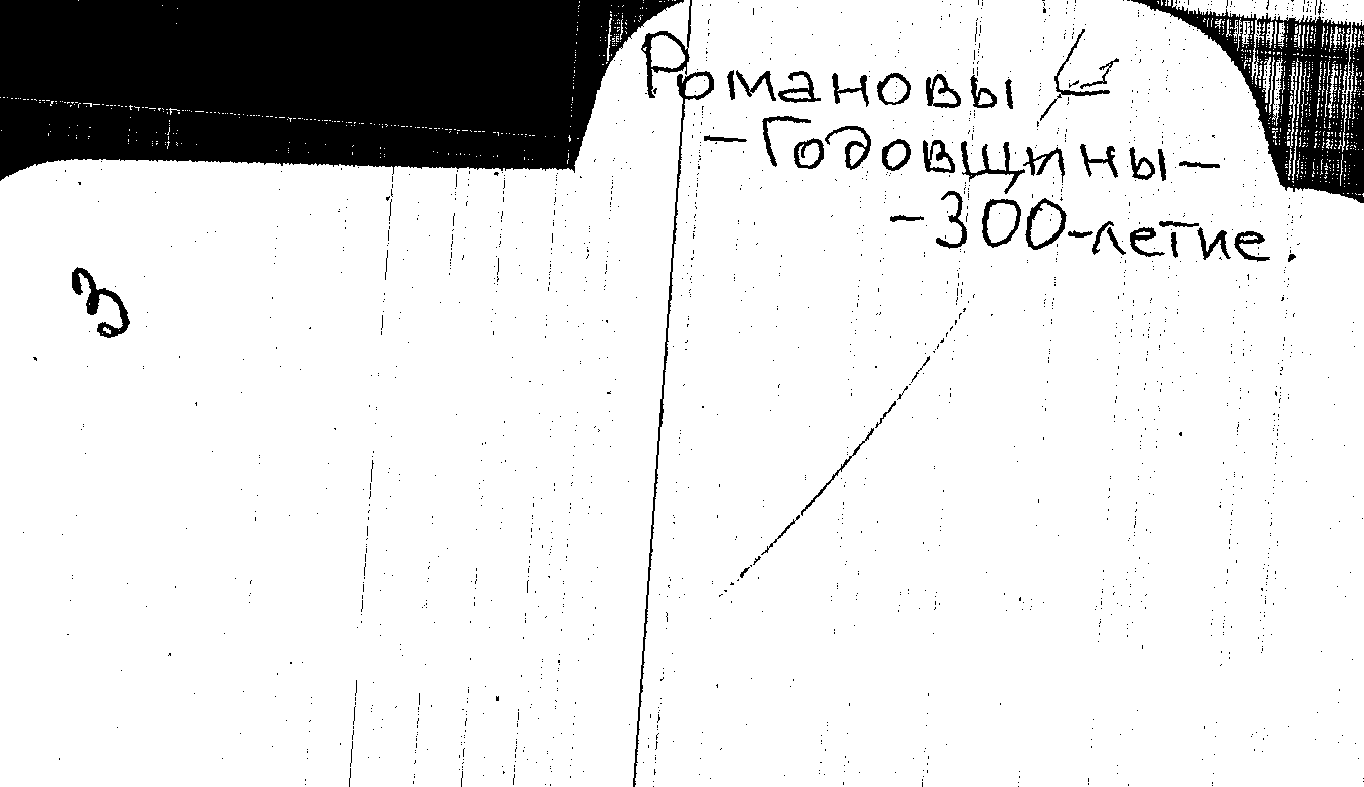 Романовы
-Годовщины-
-300-летие.